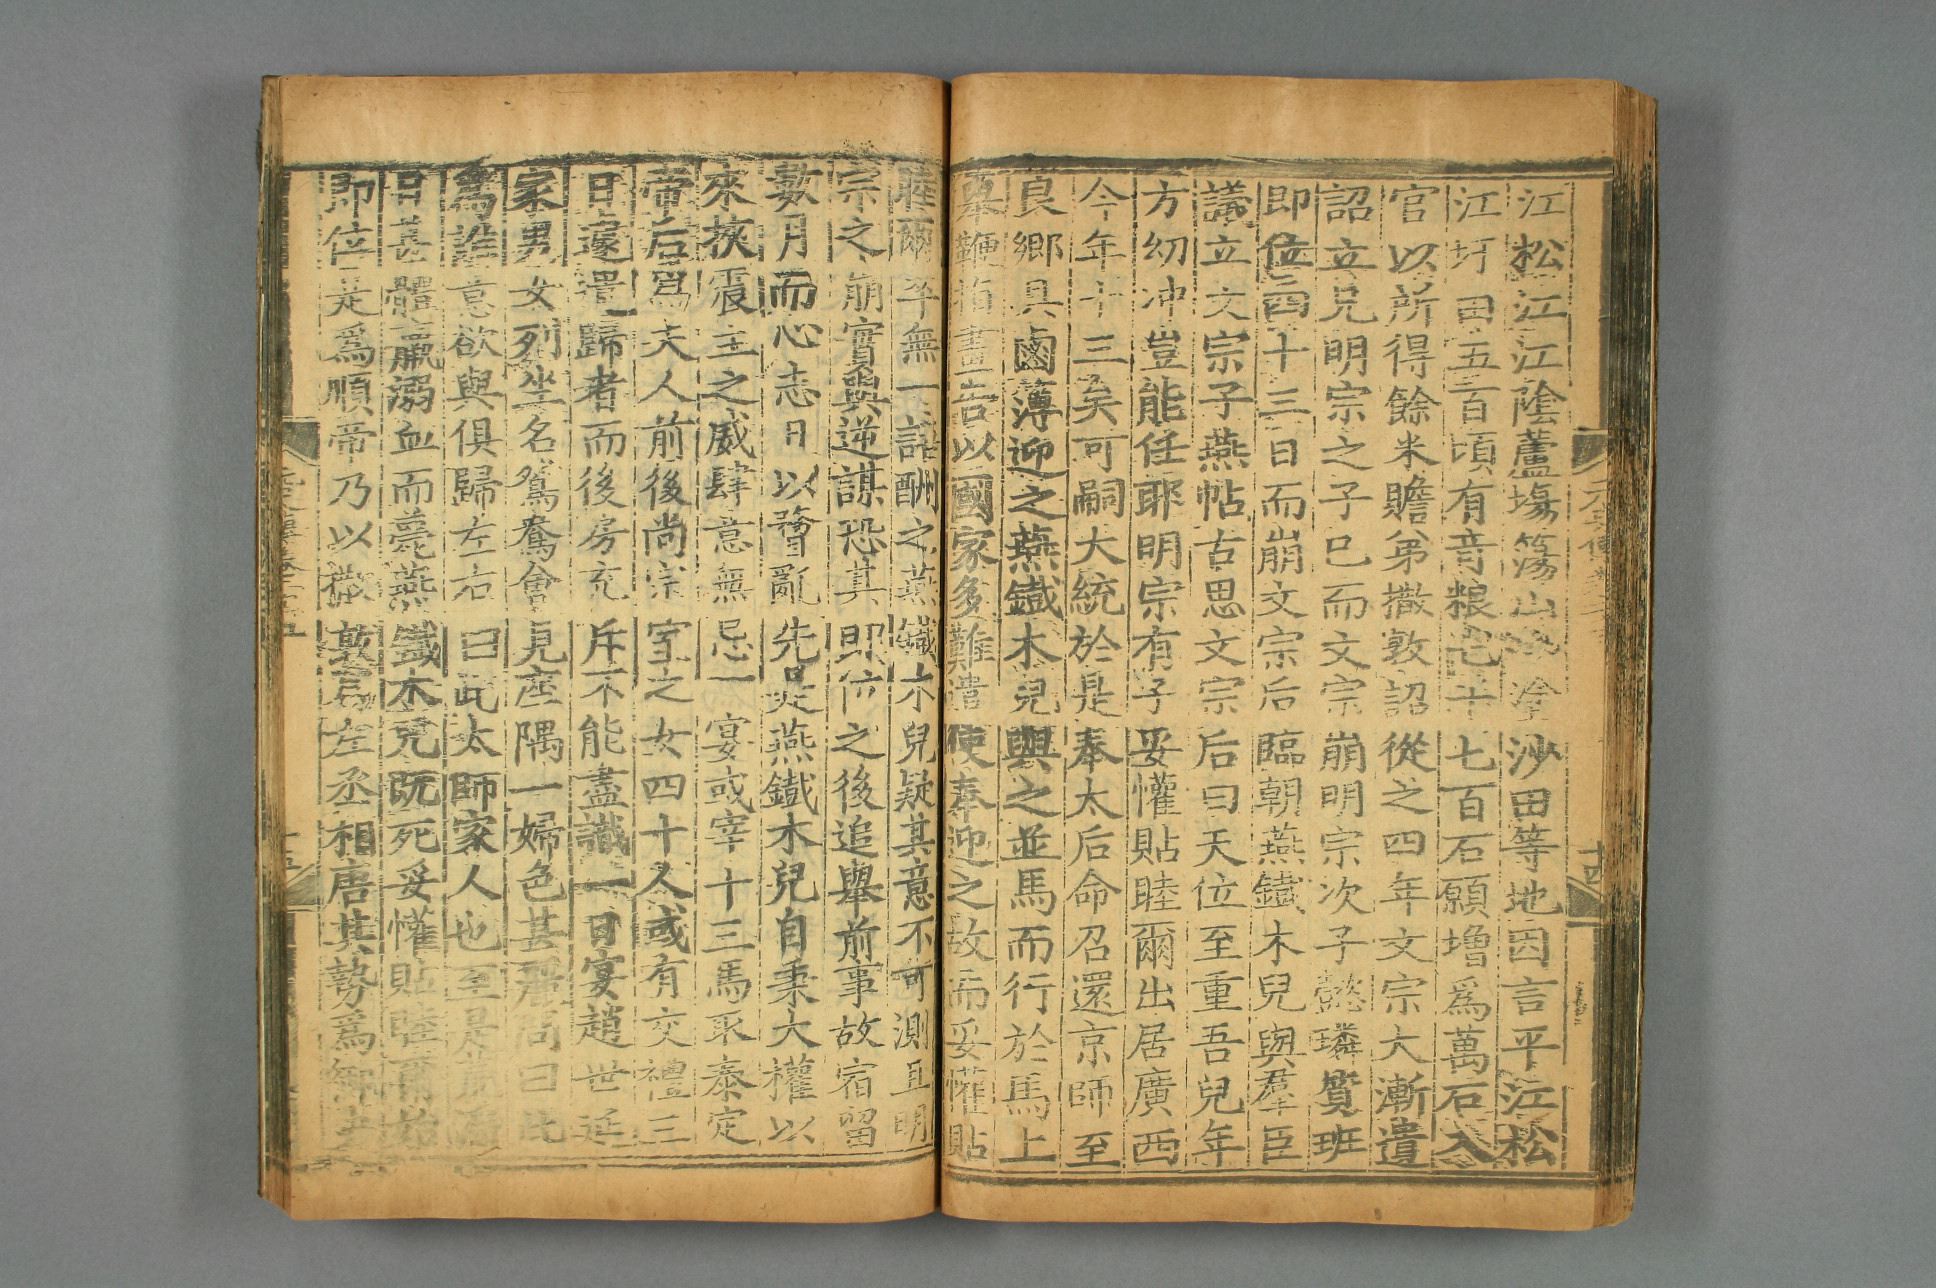 江松江江陰蘆塲蕩山沙塗沙田等地因言平江松
江圩田五百頃有竒粮七千七百石願增爲萬石入
官以所得餘米贍弟撒敦詔從之四年文宗大漸遺
詔立兄明宗之子已而文宗崩明宗次子懿璘質班
即位四十三日而崩文宗后臨朝燕鐵木兒與羣臣
議立文宗子燕帖古思文宗后曰天位至重吾兒年
方幼冲豈能任耶明宗有子妥懽貼睦爾出居廣西
今年十三矣可嗣大統於是奉太后命召還京師至
良鄉具鹵薄迎之燕鐵木兒與之並馬而行於馬上
舉鞭指畫告以國家多難遣使奉迎之故而妥懽貼
睦爾卒無一語酬之燕鐵木兒疑其意不可測且明
宗之崩實與逆謀恐其即位之後追舉前事故宿留
數月而心志日以瞀亂先是燕鐵木兒自秉大權以
來挾震主之威肆意無忌一宴或宰十三馬取泰定
帝后爲夫人前後尚宗室之女四十人或有交禮三
日遽遣歸者而後房充斥不能盡識一日宴趙世延
家男女列坐名鴛鴦會見座隅一婦色甚麗問曰此
爲誰意欲與俱歸左右曰此太師家人也至是荒淫
日甚體羸溺血而薨燕鐵木兒既死妥懽貼睦爾始
即位是爲順帝乃以撒敦爲左丞相唐其勢爲
十四